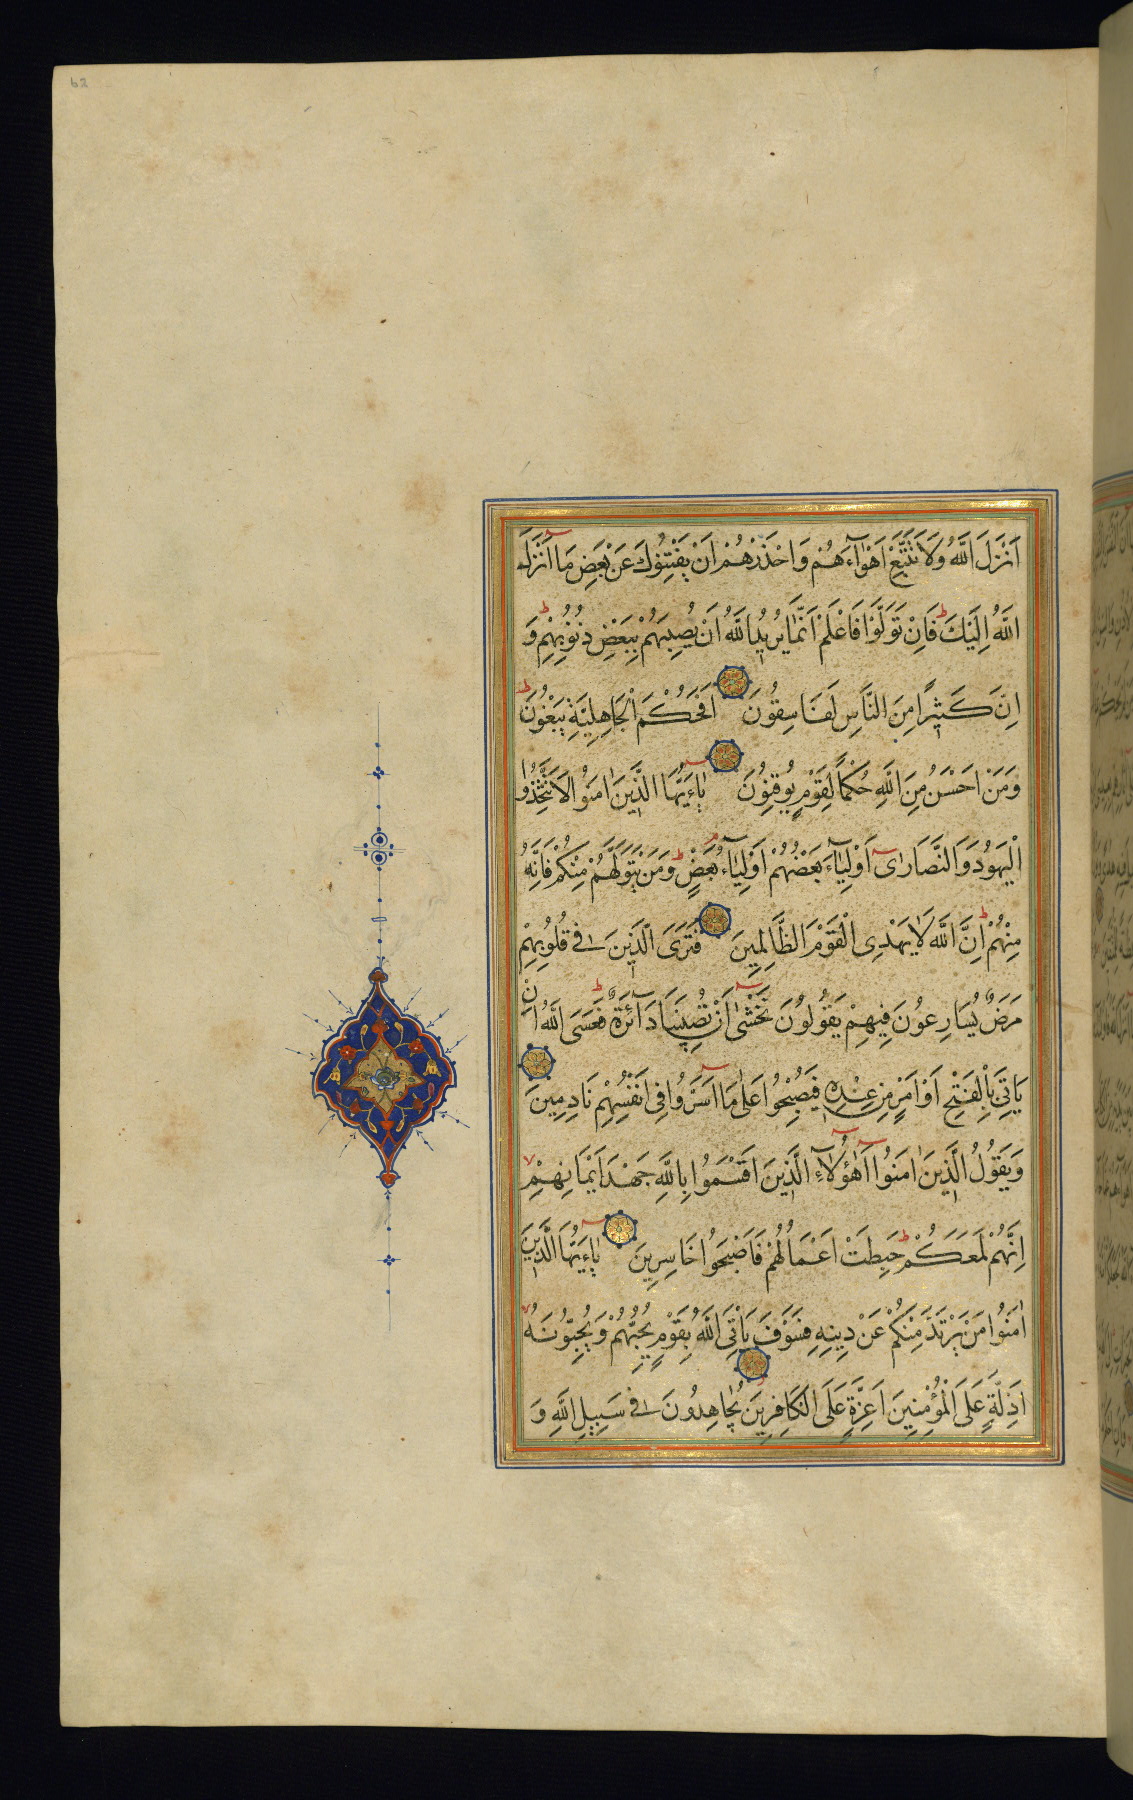 62
اَنْزَلَ اللَّهُ وَلَا تَتَّبِعْ اَهْوَآءَهُمْ وَاحْذَرْهُمْ اَنْ يَفْتِنُوكَ عَنْ بَعْضِ مَآ اَنْزَلَ
اللَّهُ اِلَيْكَ ط فَاِنْ تَوَلَّوْا فَاعْلَمْ اَنَّمَا يُرِيدُ اللَّهُ اَنْ يُصِيبَهُمْ بِبَعْضِ ذُنُوبِهِمْ ط وَ
اِنَّ كَثِيرًا مِنَ النَّاسِ لَفَاسِقُونَ اَفَحُكْمَ الْجَاهِلِيَّةِ يَبْغُونَ ط
وَمَنْ اَحْسَنُ مِنَ اللَّهِ حُكْمًا لِقَوْمٍ يُوقِنُونَ يَآءَيُّهَا الَّذِينَ اٰمَنُوا لَا تَتَّخِذُوا
الْيَهُودَ وَالنَّصَارٰىٓ اَوْلِيَآءَ بَعْضُهُمْ اَوْلِيَآءُ بَعْضٍ ط وَمَنْ يَتَوَلَّهُمْ مِنْكُمْ فَاِنَّهُ
مِنْهُمْ ط اِنَّ اللَّهَ لَا يَهْدِى الْقَوْمَ الظَّالِمِينَ فَتَرَى الَّذِينَ فِى قُلُوبِهِمْ
مَرَضٌ يُسَارِعُونَ فِيهِمْ يَقُولُونَ نَخْشٰىٓ اَنْ تُصِيبَنَا دَآئِرَةٌ ط فَعَسَى اللَّهُ اَنْ
يَاْتِىَ بِالْفَتْحِ اَوْ اَمْرٍ مِنْ عِنْدِهِ فَيُصْبِحُوا عَلٰى مَآ اَسَرُّوا فِى اَنْفُسِهِمْ نَادِمِينَ
وَيَقُولُ الَّذِينَ اٰمَنُوٓا اَهٰٓؤُلَآءِ الَّذِينَ اَقْسَمُوا بِاللَّهِ جَهْدَ اَيْمَانِهِمْ لا
اِنَّهُمْ لَمَعَكُمْ ط حَبِطَتْ اَعْمَالُهُمْ فَاَصْبَحُوا خَاسِرِينَ يَآءَيُّهَا الَّذِينَ
اٰمَنُوا مَنْ يَرْتَدَّ مِنْكُمْ عَنْ دِينِهِ فَسَوْفَ يَاْتِى اللَّهُ بِقَوْمٍ يُحِبُّهُمْ وَيُحِبُّونَهُ لا
اَذِلَّةٍ عَلَى الْمُؤْمِنِينَ اَعِزَّةٍ عَلَى الْكَافِرِينَ يُجَاهِدُونَ فِى سَبِيلِ اللَّهِ وَ